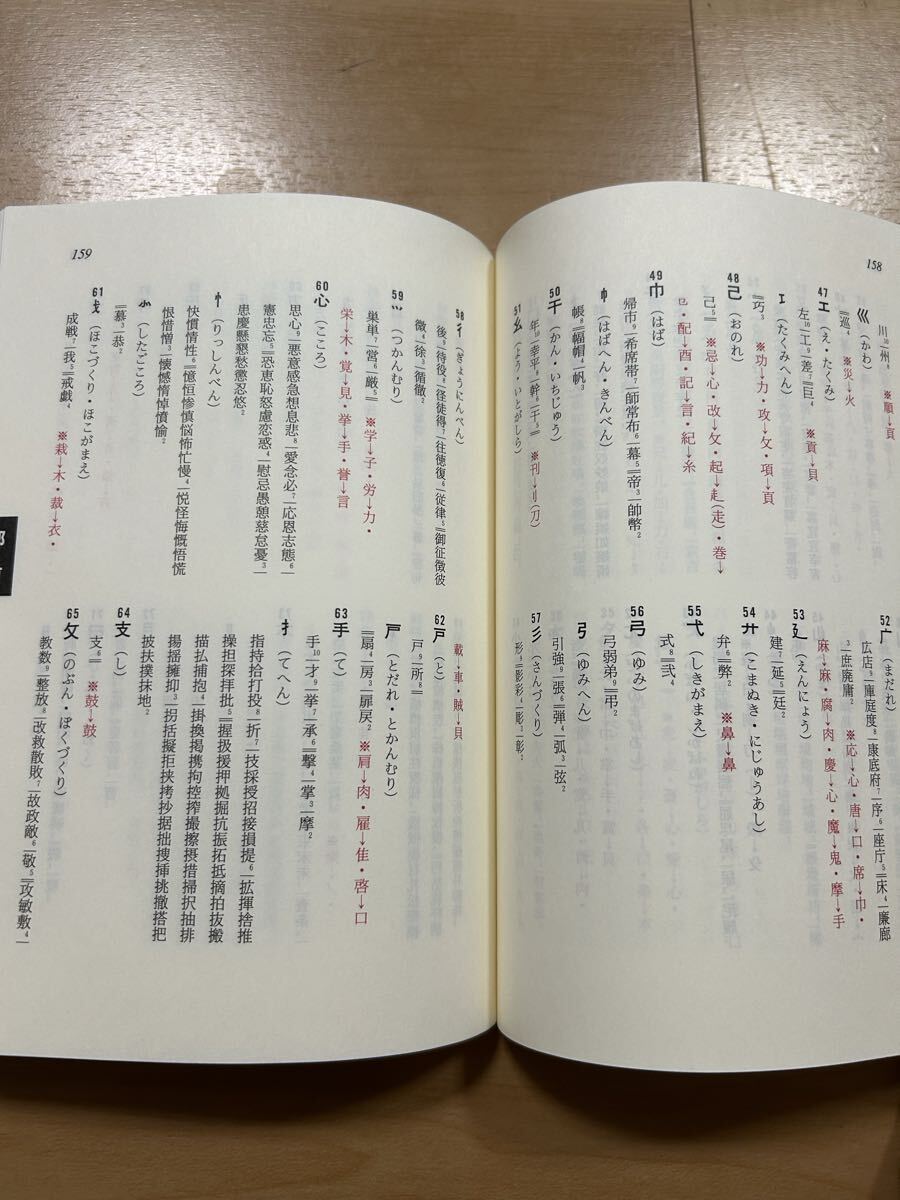 158
川10|州8 ※順↓頁
巛(かわ)
‖巡4 ※災↓火
47 工(え・たくみ)
左10工|差‖巨4 ※貢↓貝
工(たくみへん)
‖巧3 ※功↓力・攻↓攵・項↓頁
48 己(おのれ)
己5‖ ※忌↓心・改↓攵・起↓走(走)・巻↓
㔾・配↓酉・記↓言・紀↓糸
49 巾(はば)
帰市9|希席帯7|師常布6|幕5‖帝3|帥幣2
巾(はばへん・きんべん)
帳8‖幅帽4|帆3
50 干(かん・いちじゅう)
年10|幸平8|幹6|干5‖ ※刊↓刂(刀)
51 幺(よう・いとがしら)
52 广(まだれ)
広店9|庫庭度8|康底府7|序6|座庁5‖床4|廉廊
3|庶廃庸2 ※応↓心・唐↓口・席↓巾・
麻↓麻・腐↓肉・慶↓心・魔↓鬼・摩↓手
53 廴(えんにょう)
建7|延5‖廷2
54 廾(こまぬき・にじゅうあし)
弁6‖弊2 ※鼻↓鼻
55 弋(しきがまえ)
式8‖弐4
56 弓(ゆみ)
弓弱弟9‖弔2
弓(ゆみへん)
引強9|張6‖弾4|弧3|弦2
57 彡(さんづくり)
形9‖影彩4|彫3|彰2
159
58 彳(ぎょうにんべん)
後9|待役8|径徒徳得7|往徳復6|従律5‖御征徴彼
微4|徐3|循徹2
59 ⺍(つかんむり)
巣単7|営6|厳5‖ ※学↓子・労↓力・
栄↓木・覚↓見・挙↓手・誉↓言
60 心(こころ)
思心9|悪意感急想息悲8|愛念必7|応恩志態6|
憲忠忘5‖恐恵恥怒慮恋惑4|慰忌愚憩慈怠憂3|
患慶懸懇愁愁懲忍悠2
忄(りっしんべん)
快慣情性6‖憶恒惨慎悩怖忙慢4|悦怪悔慨悟慌
恨惜憎3|懐憾惰悼憤愉2
⺗(したごころ)
‖慕3|恭2
61 戈(ほこづくり・ほこがまえ)
成戦7|我5‖戒戯4 ※栽↓木・裁↓衣・
載↓車・賊↓貝
62 戸(と)
戸9|所8‖
戸(とだれ・とかんむり)
‖扇4|房3|扉戻2 ※肩↓肉・雇↓隹・啓↓口
63 手(て)
手10|才9|挙7|承6‖撃4|掌3|摩2
扌(てへん)
指持拾打投8|折7|技採授招接損提6|拡揮捨推
操担探拝批5‖握扱援押拠掘抗振拓抵摘拍抜搬
描払捕抱4|掛換掲携拘控搾撮擦摂措掃択抽排
揚揺擁抑3|拐括擬拒挟拷抄据拙捜挿挑撤搭把
披扶撲抹2
64 支(し)
支6‖ ※鼓↓鼓
65 攵(のぶん・ぼくづくり)
教数9|整放8|改救散敗7|故政敵6|敬5‖攻敏敷4|